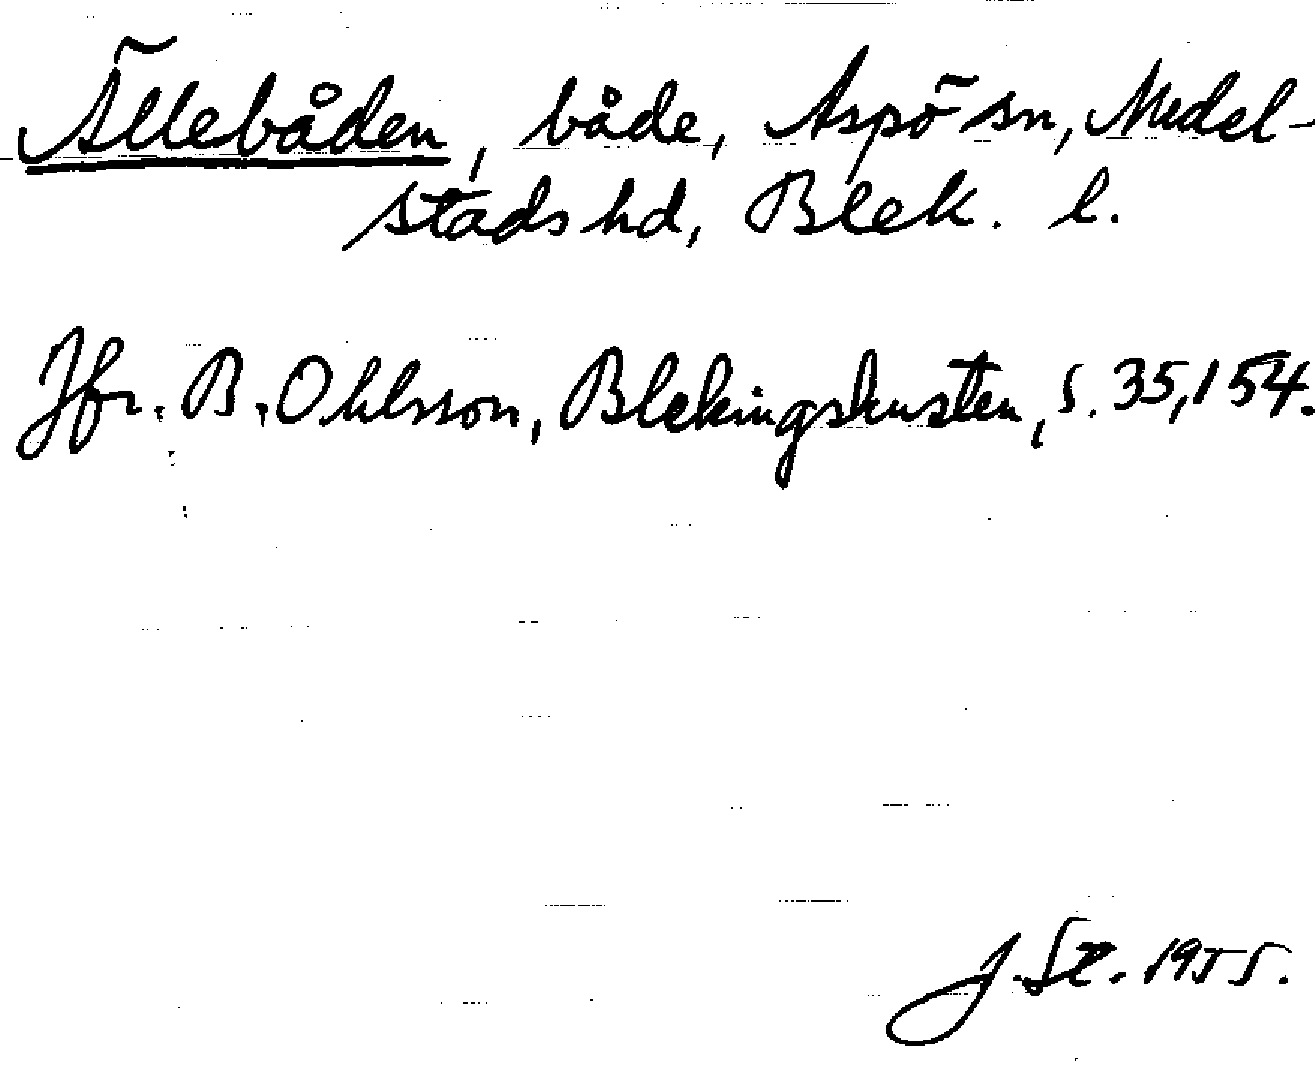 Ällebåden, både, Aspö sn, Medel-
stads hd, Blek. l.
Jfr. B. Ohlsson, Blekingskusten, s. 35, 154.
J. St. 1955.